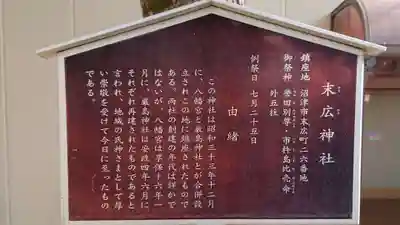 末広神社
鎮座地 沼津市末広町二六番地
御祭神 誉田別尊・市杵島比売命
外五柱
例祭日 七月二十五日
由緒
この神社は昭和三十三年十二月
に、八幡宮と厳島神社とが合併設
立されこの地に鎮座されたもので
ある。両社の創建の年代は詳かで
はないが、八幡宮は享保十六年一
月に、厳島神社は安政四年六月に
それぞれ再建されたものであると
言われ、地域の氏神さまとして厚
い崇敬を受けて今日に至ったもの
である。